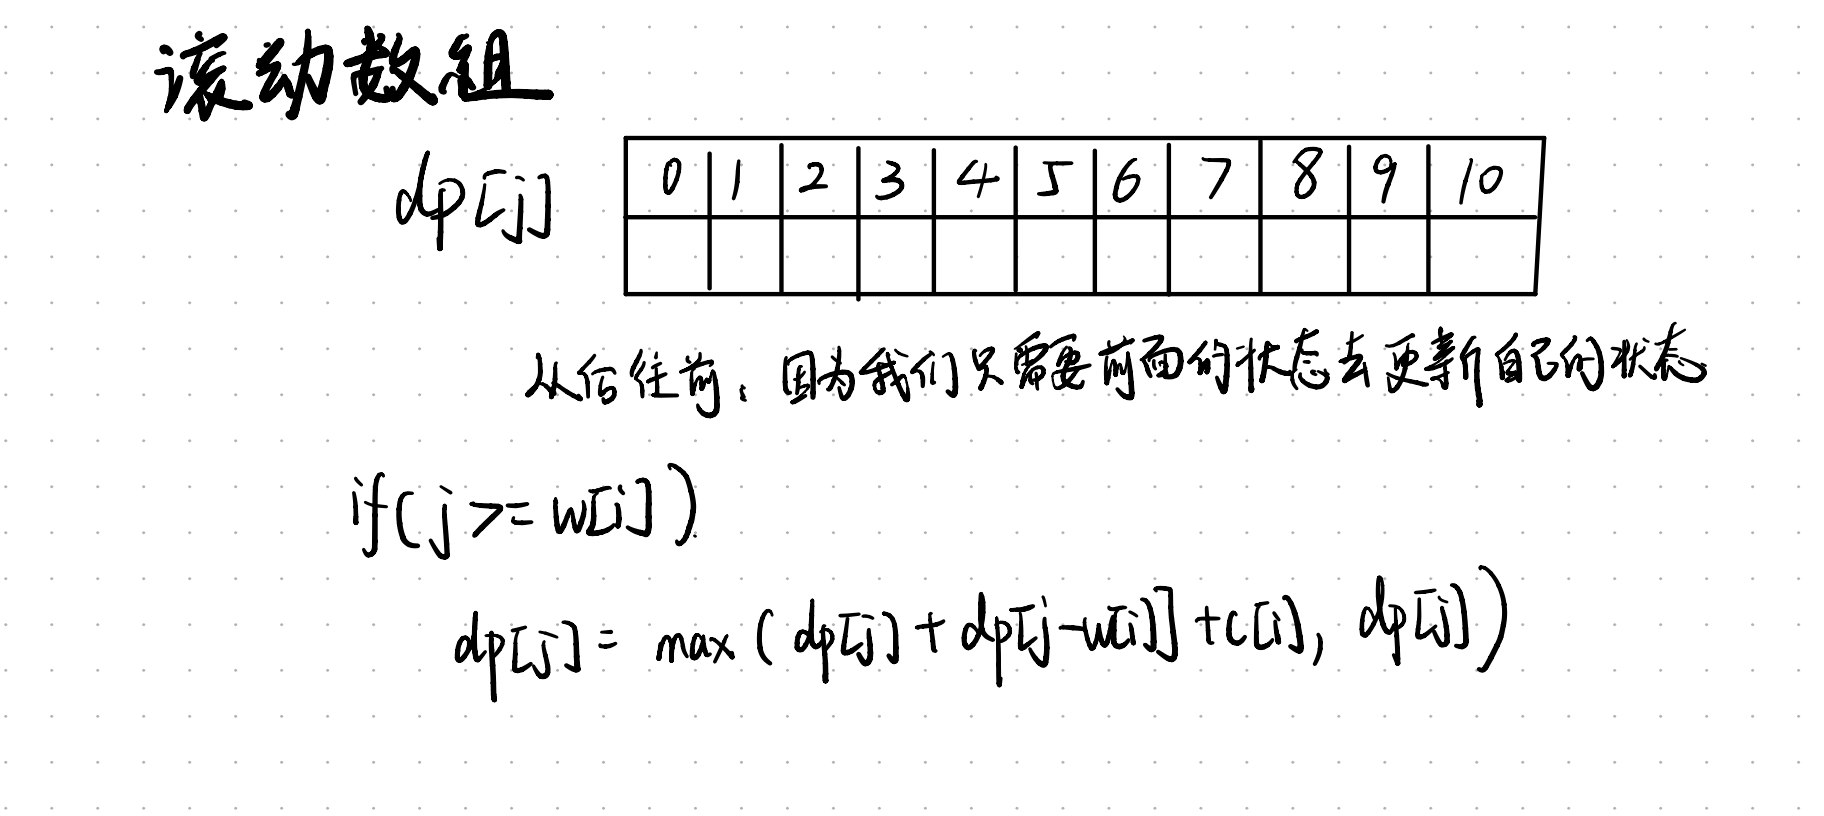 滚动数组
dp[j]
0 1 2 3 4 5 6 7 8 9 10
从后往前，因为我们只需要前面的状态去更新自己的状态
if(j >= w[i])
dp[j] = max(dp[j] + dp[j-w[i]] + c[i], dp[j])